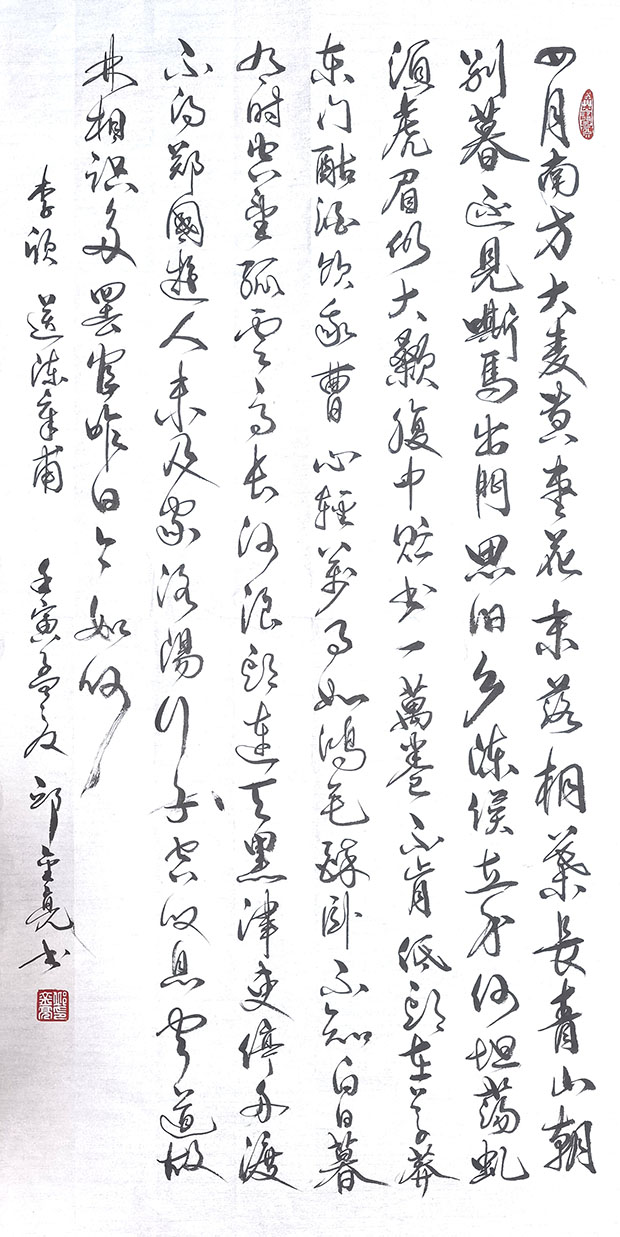 四月南方大麦黄枣花未落桐葉長青山朝
别暮还見嘶馬出门思旧乡陈侯立身何坦荡虬
须虎眉仍大颡腹中贮书一萬卷不肯低头在草莽
东门酤酒饮我曹心轻万事如鸿毛醉卧不知白日暮
有时空望孤云高长河浪头连天黑津吏停舟渡
不得郑國遊人未及家洛陽行子空叹息闻道故
林相识多罢官昨日今如何
李颀 送陈章甫 壬寅孟夏 邱金亮书